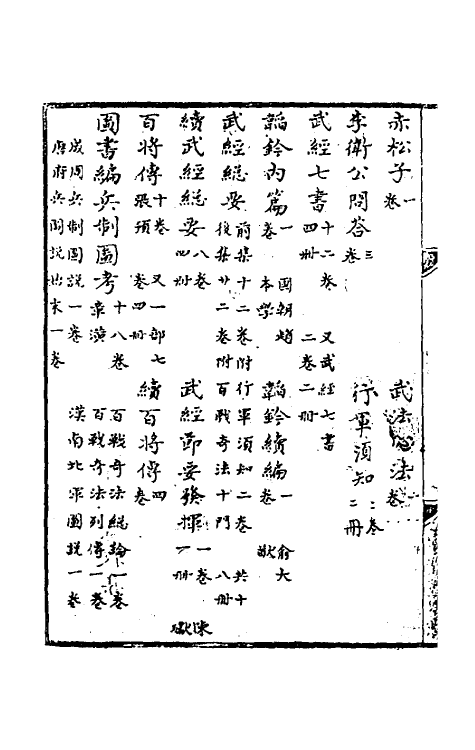 赤松子一卷 武法心法一卷
李衛公問答三卷 行軍須知二卷二冊
武經七書十二卷四冊 又武經七書二卷二冊
韜鈐內篇一卷 國朝趙本學 韜鈐續編一卷 俞大猷
武經總要前集十二卷附行軍須知二卷 後集廿二卷附百戰奇法十門 共十八冊
續武經總要八卷四冊 武經節要發揮一卷一冊
百將傳十卷張預 又一部七卷四冊 續百將傳四卷 陳
圖書編兵制圖考十八卷章潢 百戰奇法總論一卷 百戰奇法列傳一卷
成周兵制圖說一卷 漢南北軍圖說一卷
唐府兵圖說出宋一卷